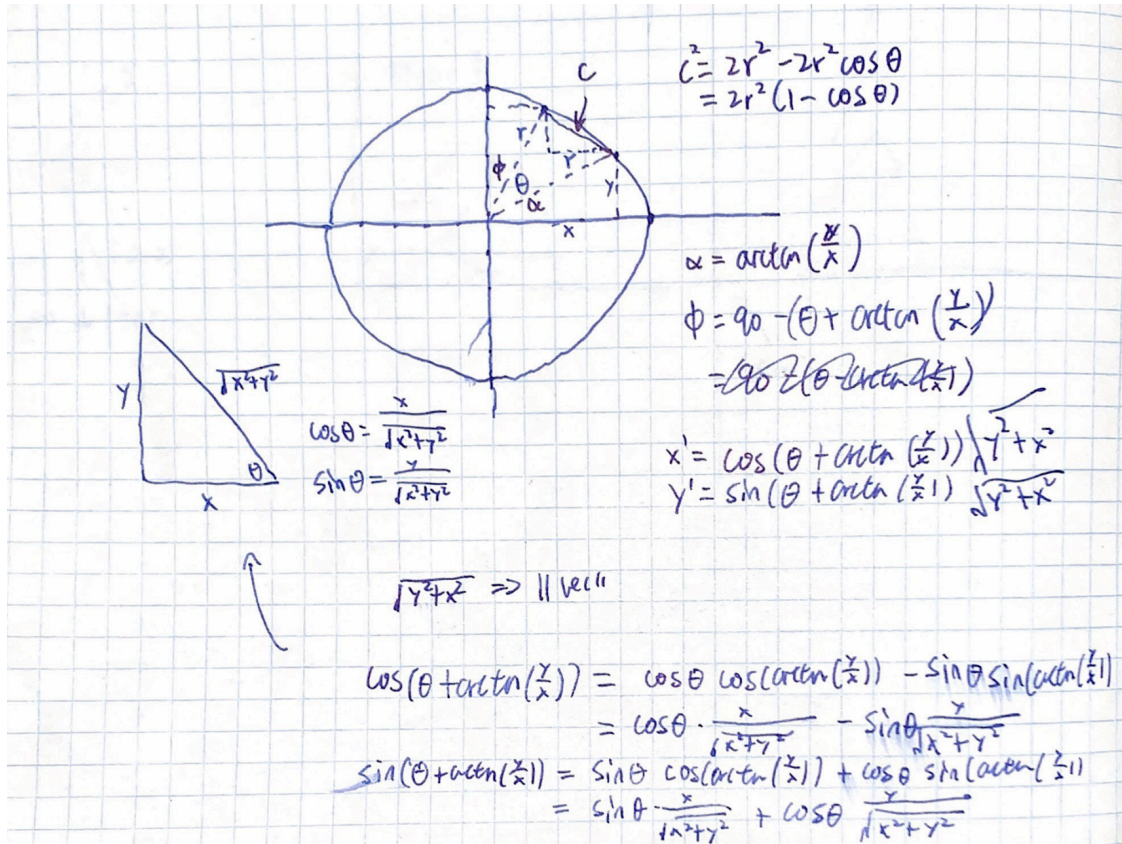 C² = 2r² - 2r² cos θ
= 2r² (1 - cos θ)
C
r
r
ϕ
θ
α
y
x
α = arctan(y/x)
ϕ = 90 - (θ + arctan(y/x))
= (90 - (θ - arctan(y/x))
y
√x²+y²
θ
x
cosθ = x/√x²+y²
sinθ = y/√x²+y²
x' = cos(θ + arctan(y/x)) √y²+x²
y' = sin(θ + arctan(y/x)) √y²+x²
√y²+x² => ||vec||
cos(θ + arctan(y/x)) = cosθ cos(arctan(y/x)) - sinθ sin(arctan(y/x))
= cosθ · x/√x²+y² - sinθ y/√x²+y²
sin(θ + arctan(y/x)) = sinθ cos(arctan(y/x)) + cosθ sin(arctan(y/x))
= sinθ · x/√x²+y² + cosθ y/√x²+y²